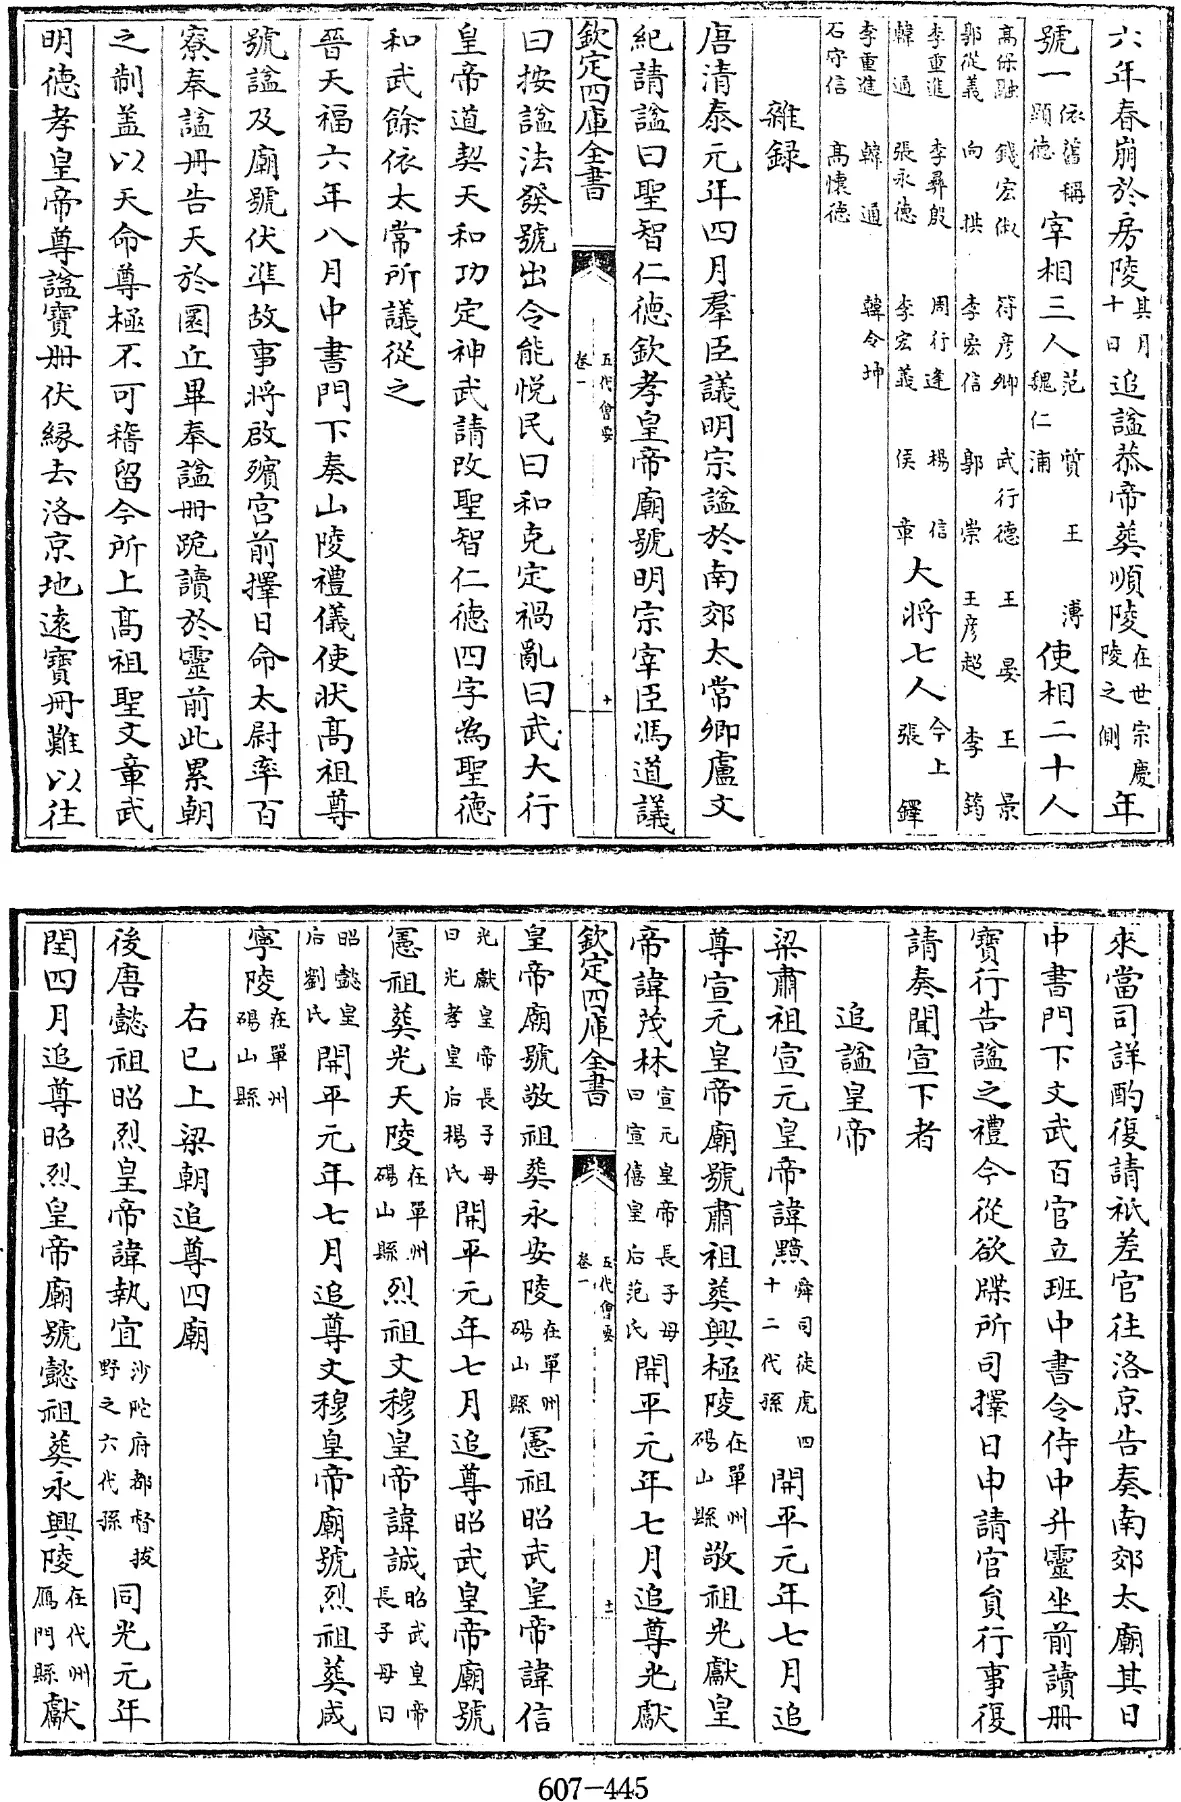 六年春崩於房陵其月十日追謚恭帝葬順陵在世宗慶陵之側年
號一依舊稱顯德宰相三人范質王溥魏仁浦使相二十人
高保融錢宏俶符彥卿武行德王晏王景郭從義向拱李宏信郭崇王彥超李筠
李重進李彝殷周行逢楊信韓通張永德李宏義侯章大將七人今上張鐸
李重進韓通韓令坤石守信高懷德
雜録
唐清泰元年四月羣臣議明宗謚於南郊太常卿盧文
紀請謚曰聖智仁德欽孝皇帝廟號明宗宰臣馮道議
欽定四庫全書 五代會要卷一 十
曰按謚法發號出令能悅民曰和克定禍亂曰武大行
皇帝道契天和功定神武請改聖智仁德四字為聖德
和武餘依太常所議從之
晉天福六年八月中書門下奏山陵禮儀使狀高祖尊
號謚及廟號伏準故事將啟殯宮前擇日命太尉率百
寮奉謚冊告天於圜丘畢奉謚冊跪讀於靈前此累朝
之制盖以天命尊極不可稽留今所上高祖聖文章武
明德孝皇帝尊謚寶冊伏緣去洛京地遠寶冊難以往
來當司詳酌復請祇差官往洛京告奏南郊太廟其日
中書門下文武百官立班中書令侍中升靈坐前讀冊
寶行告謚之禮今從欲牒所司擇日申請官員行事復
請奏聞宣下者
追謚皇帝
梁肅祖宣元皇帝諱黯舜司徒虎四十二代孫開平元年七月追
尊宣元皇帝廟號肅祖葬興極陵在單州碭山縣敬祖光獻皇
帝諱茂林宣元皇帝長子母曰宣僖皇后范氏開平元年七月追尊光獻
欽定四庫全書 五代會要卷一 十一
皇帝廟號敬祖葬永安陵在單州碭山縣憲祖昭武皇帝諱信
光獻皇帝長子母曰光孝皇后楊氏開平元年七月追尊昭武皇帝廟號
憲祖葬光天陵在單州碭山縣烈祖文穆皇帝諱誠昭武皇帝長子母曰
昭懿皇后劉氏開平元年七月追尊文穆皇帝廟號烈祖葬咸
寧陵在單州碭山縣
右已上梁朝追尊四廟
後唐懿祖昭烈皇帝諱執宜沙陀府都督拔野之六代孫同光元年
閏四月追尊昭烈皇帝廟號懿祖葬永興陵在代州鴈門縣獻
607-445